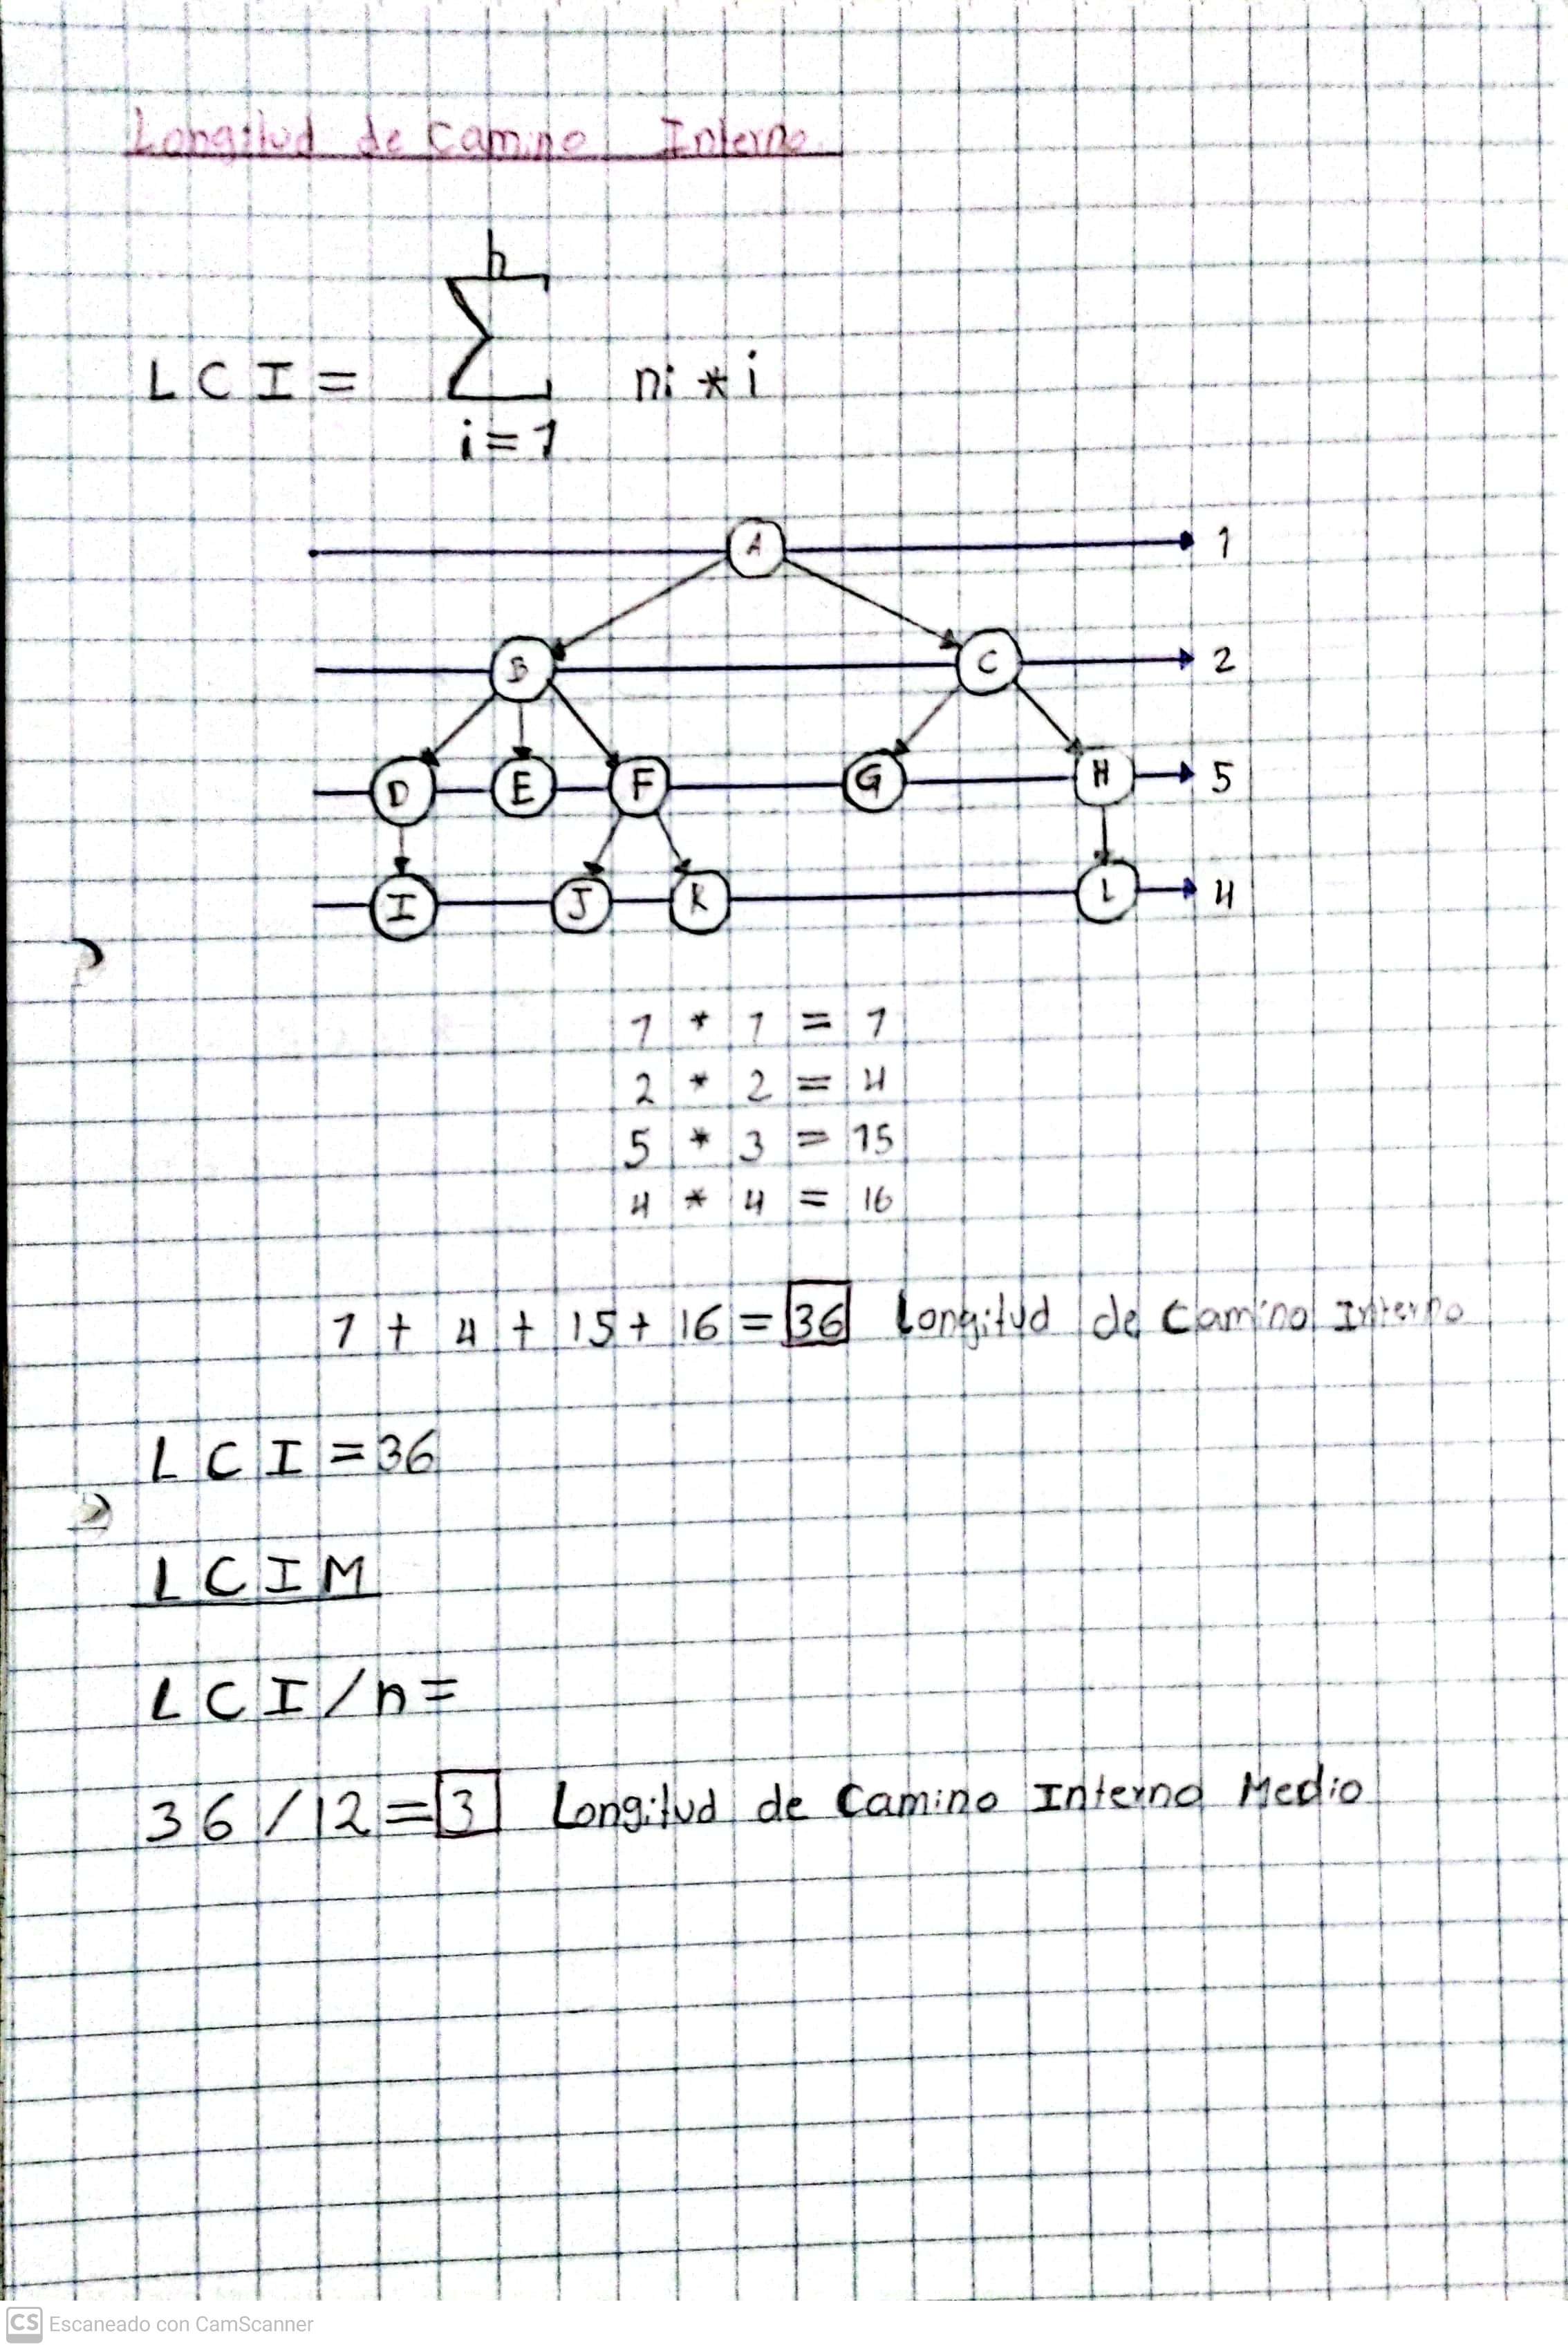 Longitud de Camino Interno
h
LCI = Σ ni * i
i=1
A 1
B C 2
D E F G H 5
I J K L 4
1 * 1 = 1
2 * 2 = 4
5 * 3 = 15
4 * 4 = 16
1 + 4 + 15 + 16 = 36 Longitud de Camino Interno
LCI = 36
LCIM
LCI/n=
36/12=3 Longitud de Camino Interno Medio
CS Escaneado con CamScanner